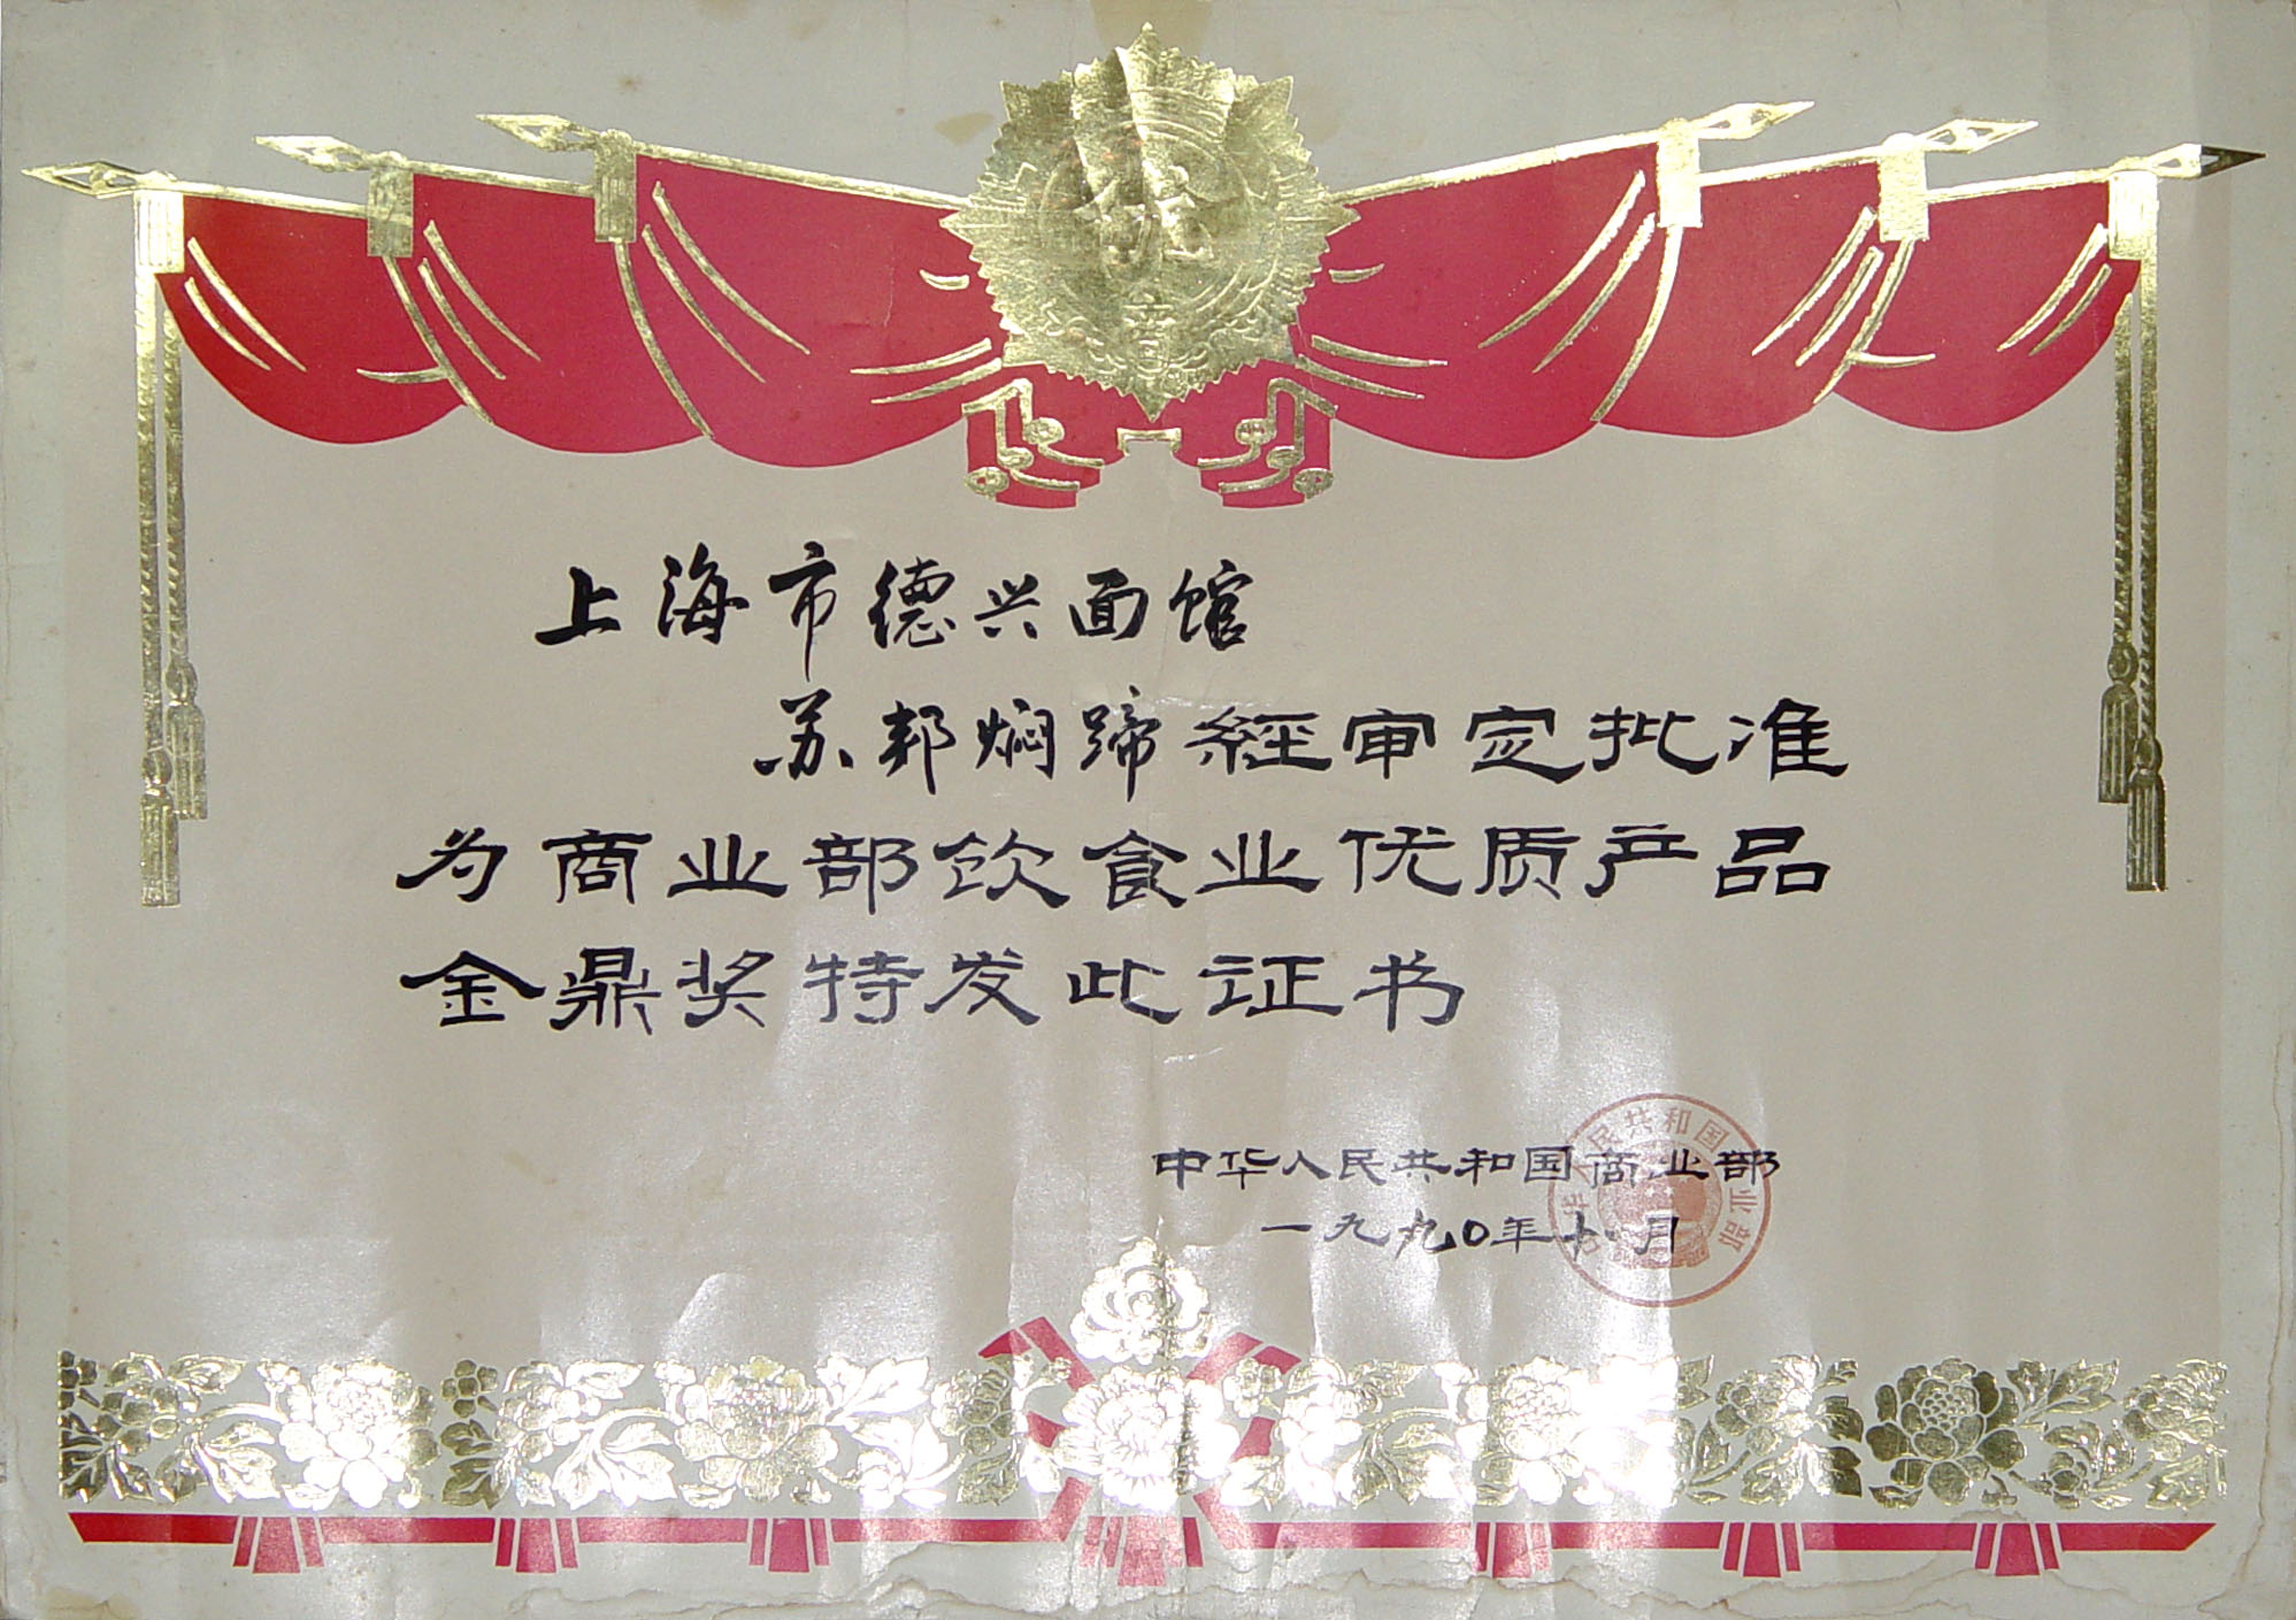 上海市德兴面馆
苏邦焖蹄經审定批准
为商业部饮食业优质产品
金鼎奖特发此证书
中华人民共和国商业部
一九九〇年十 月